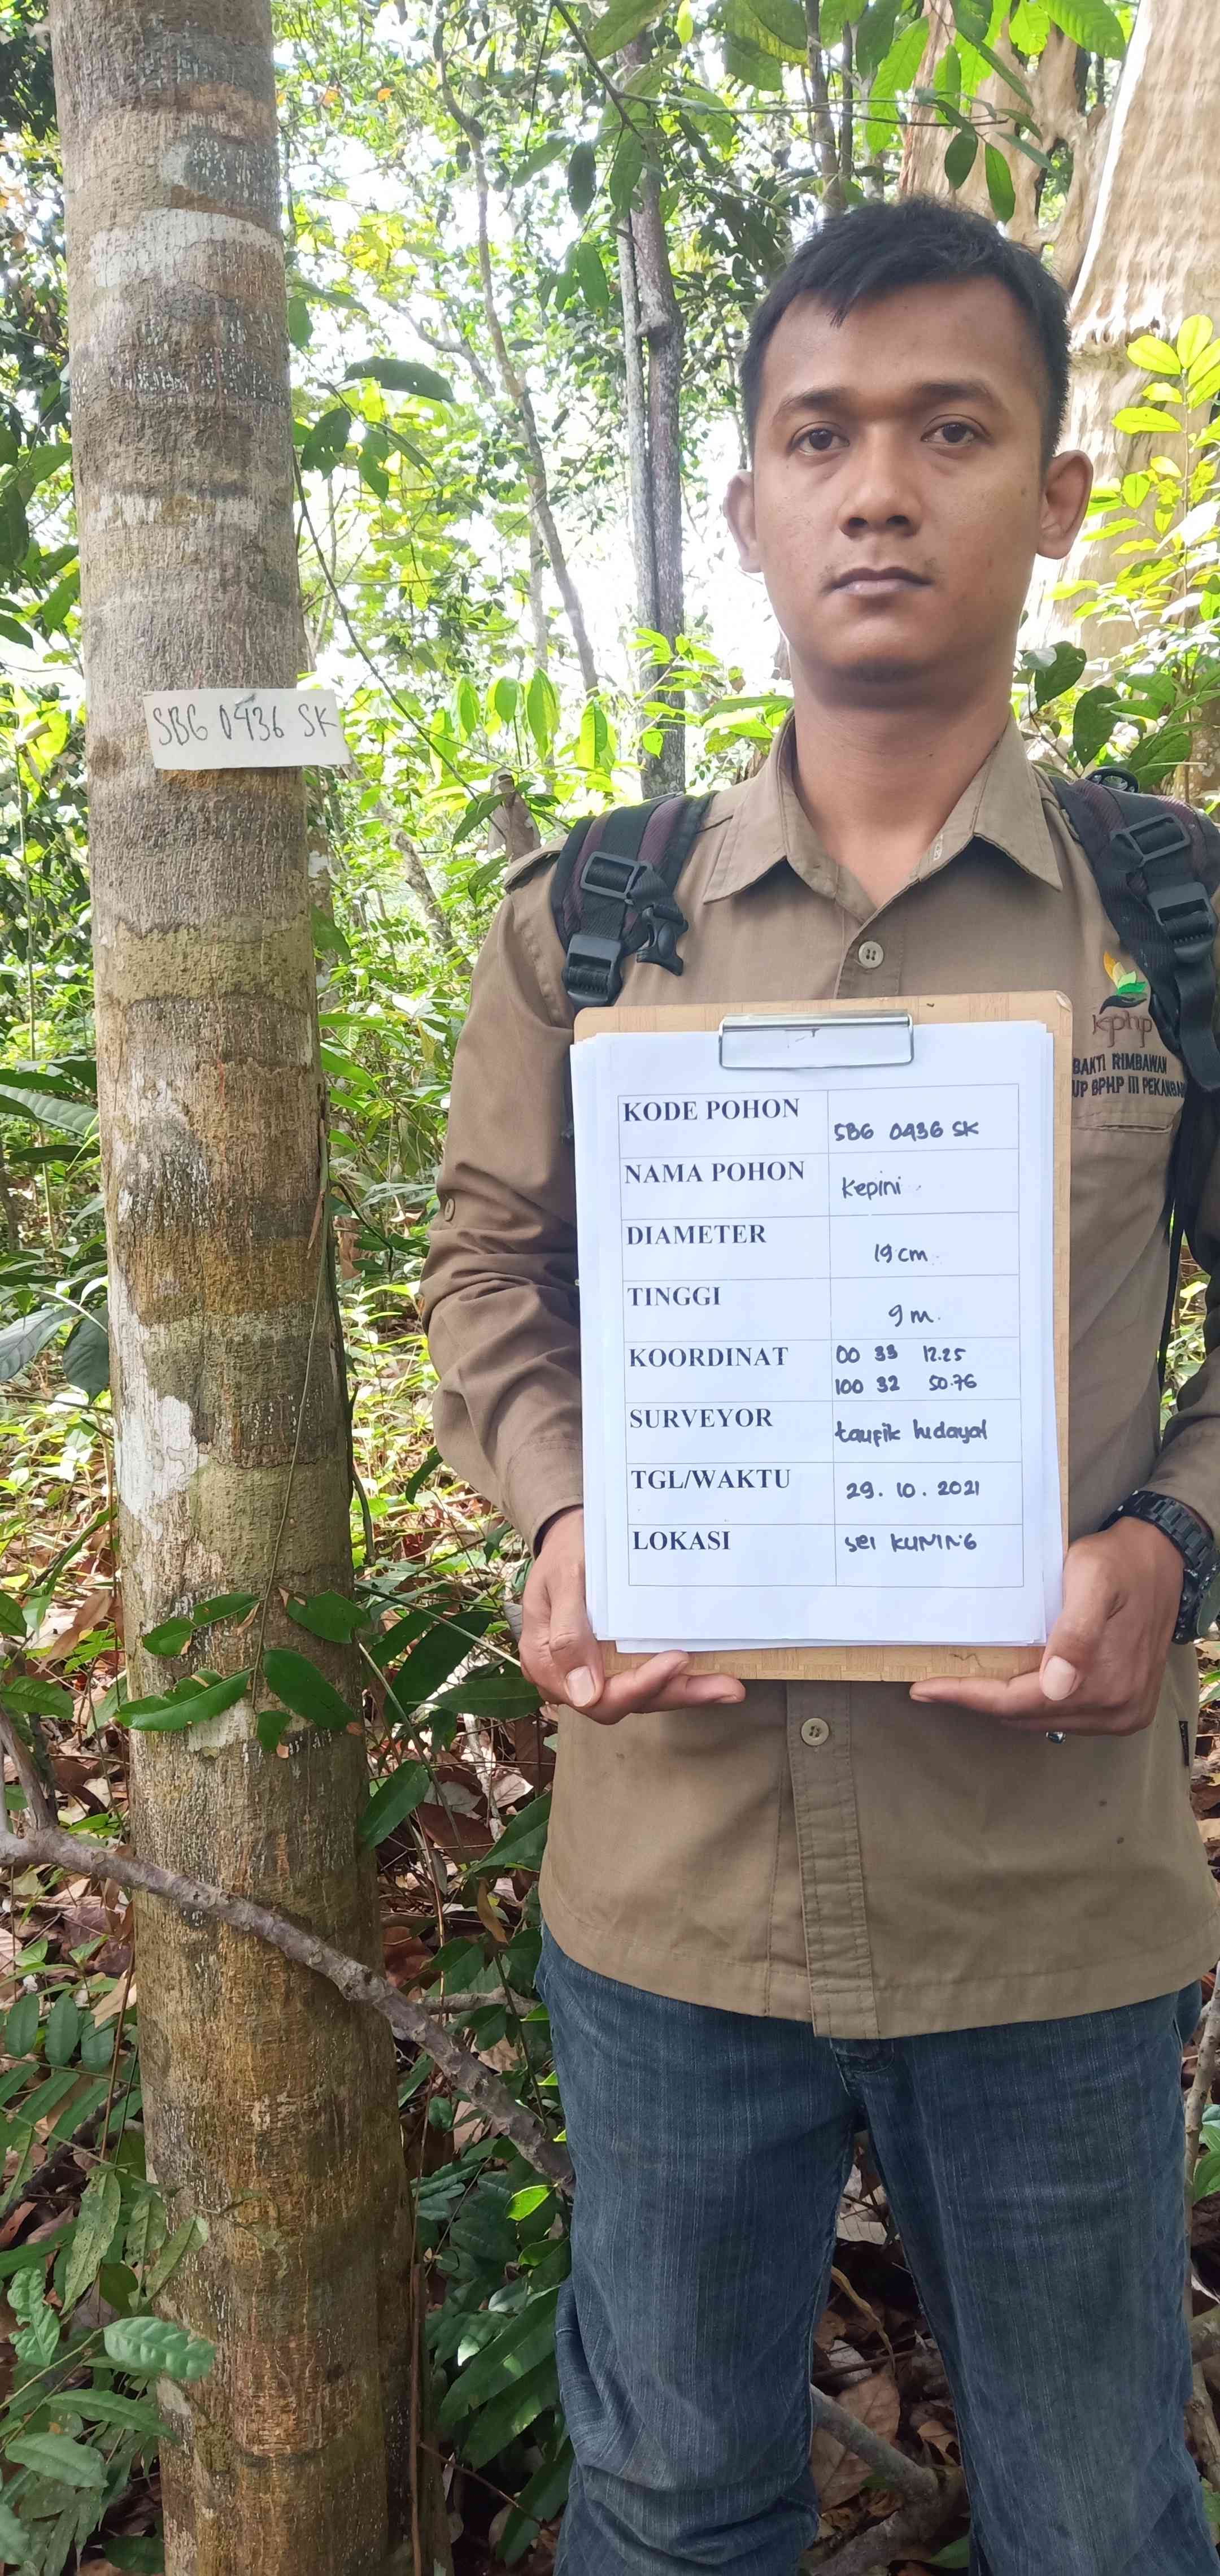 SBG 0436 SK
kphp
BAKTI RIMBAWAN
UP BPHP III PEKANBA
KODE POHON SBG 0436 SK
NAMA POHON Kepini
DIAMETER 19 cm
TINGGI 9 m.
KOORDINAT 00 33 12.25
100 32 50.76
SURVEYOR taufik hidayat
TGL/WAKTU 29. 10. 2021
LOKASI sei KUNING